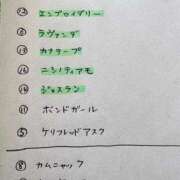 ⑫ エンブロイダリー
⑥ ラヴァンダ
② カナテープ
⑯ ニシノティアモ
⑭ ジョスラン
⑪ ボンドガール
⑤ ケリフレッドアスク
⑧ カムニャック